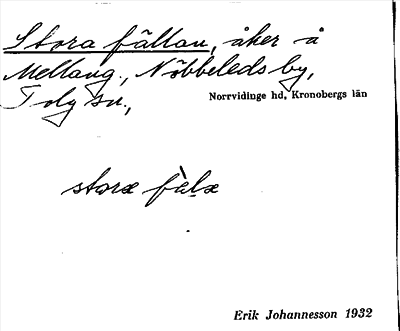 Stora fällan, åker å
Mellang., Nöbbeleds by,
Tolg sn.,
Norrvidinge hd, Kronobergs län
storæ fèlæ
Erik Johannesson 1932